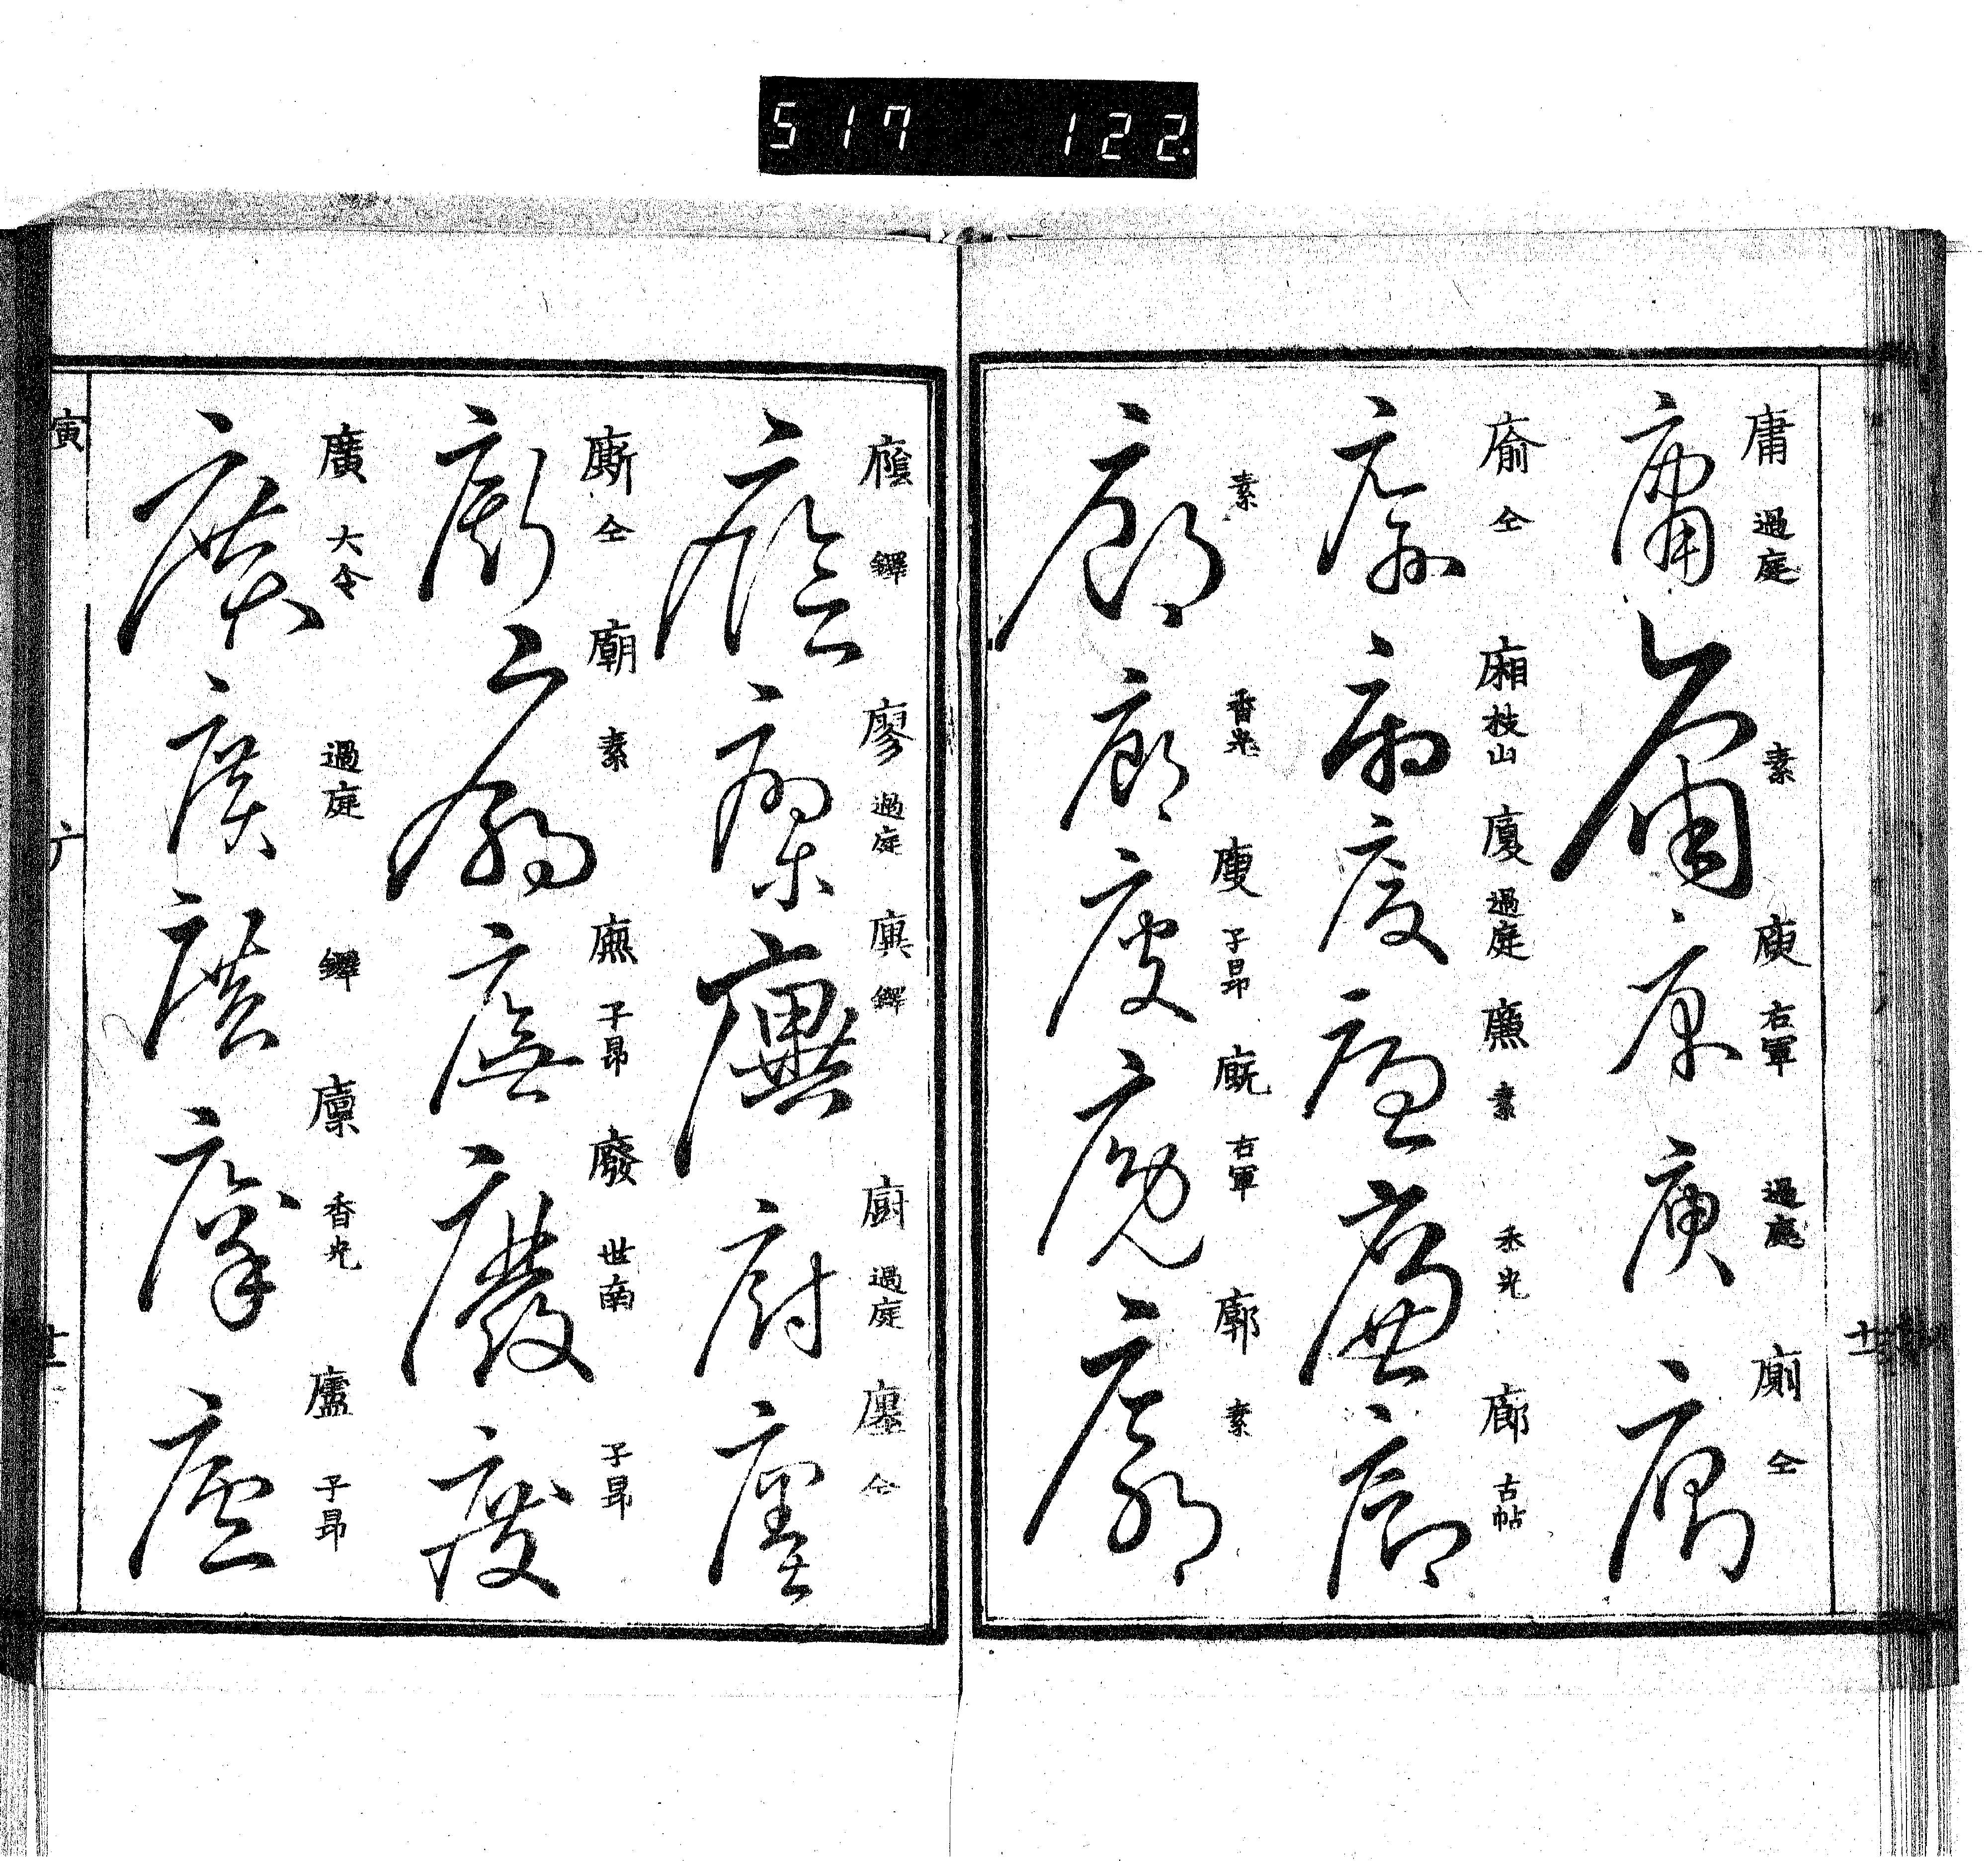 517 122
庸 過庭 素 庾 右軍 過庭 廁 仝
廥 仝 廂 枝山 廈 過庭 廉 素 香光 廊 古帖
素 香光 廋 子昂 廐 右軍 廓 素
廕 鐸 廖 過庭 廙 鐸 廚 過庭 廛 仝
廝 仝 廟 素 廡 子昂 廢 世南 子昂
廣 大令 過庭 鐸 廩 香光 廬 子昂
寅 广 廿一